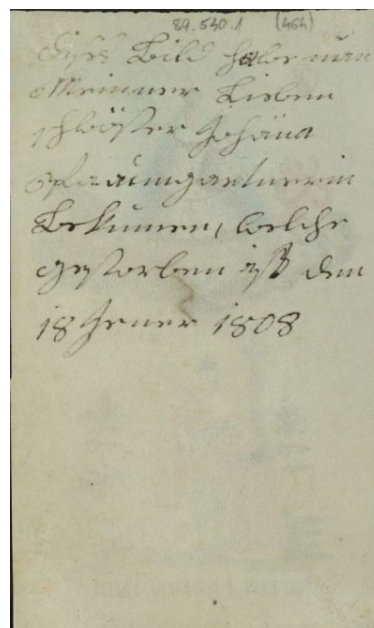 89.540.1 (464)
Dises Bild habe man
Meinner Lieben
schwöster Johäna
Paaumgartnerin
Bekumen, welche
gestorben ist den
18 Jener 1808